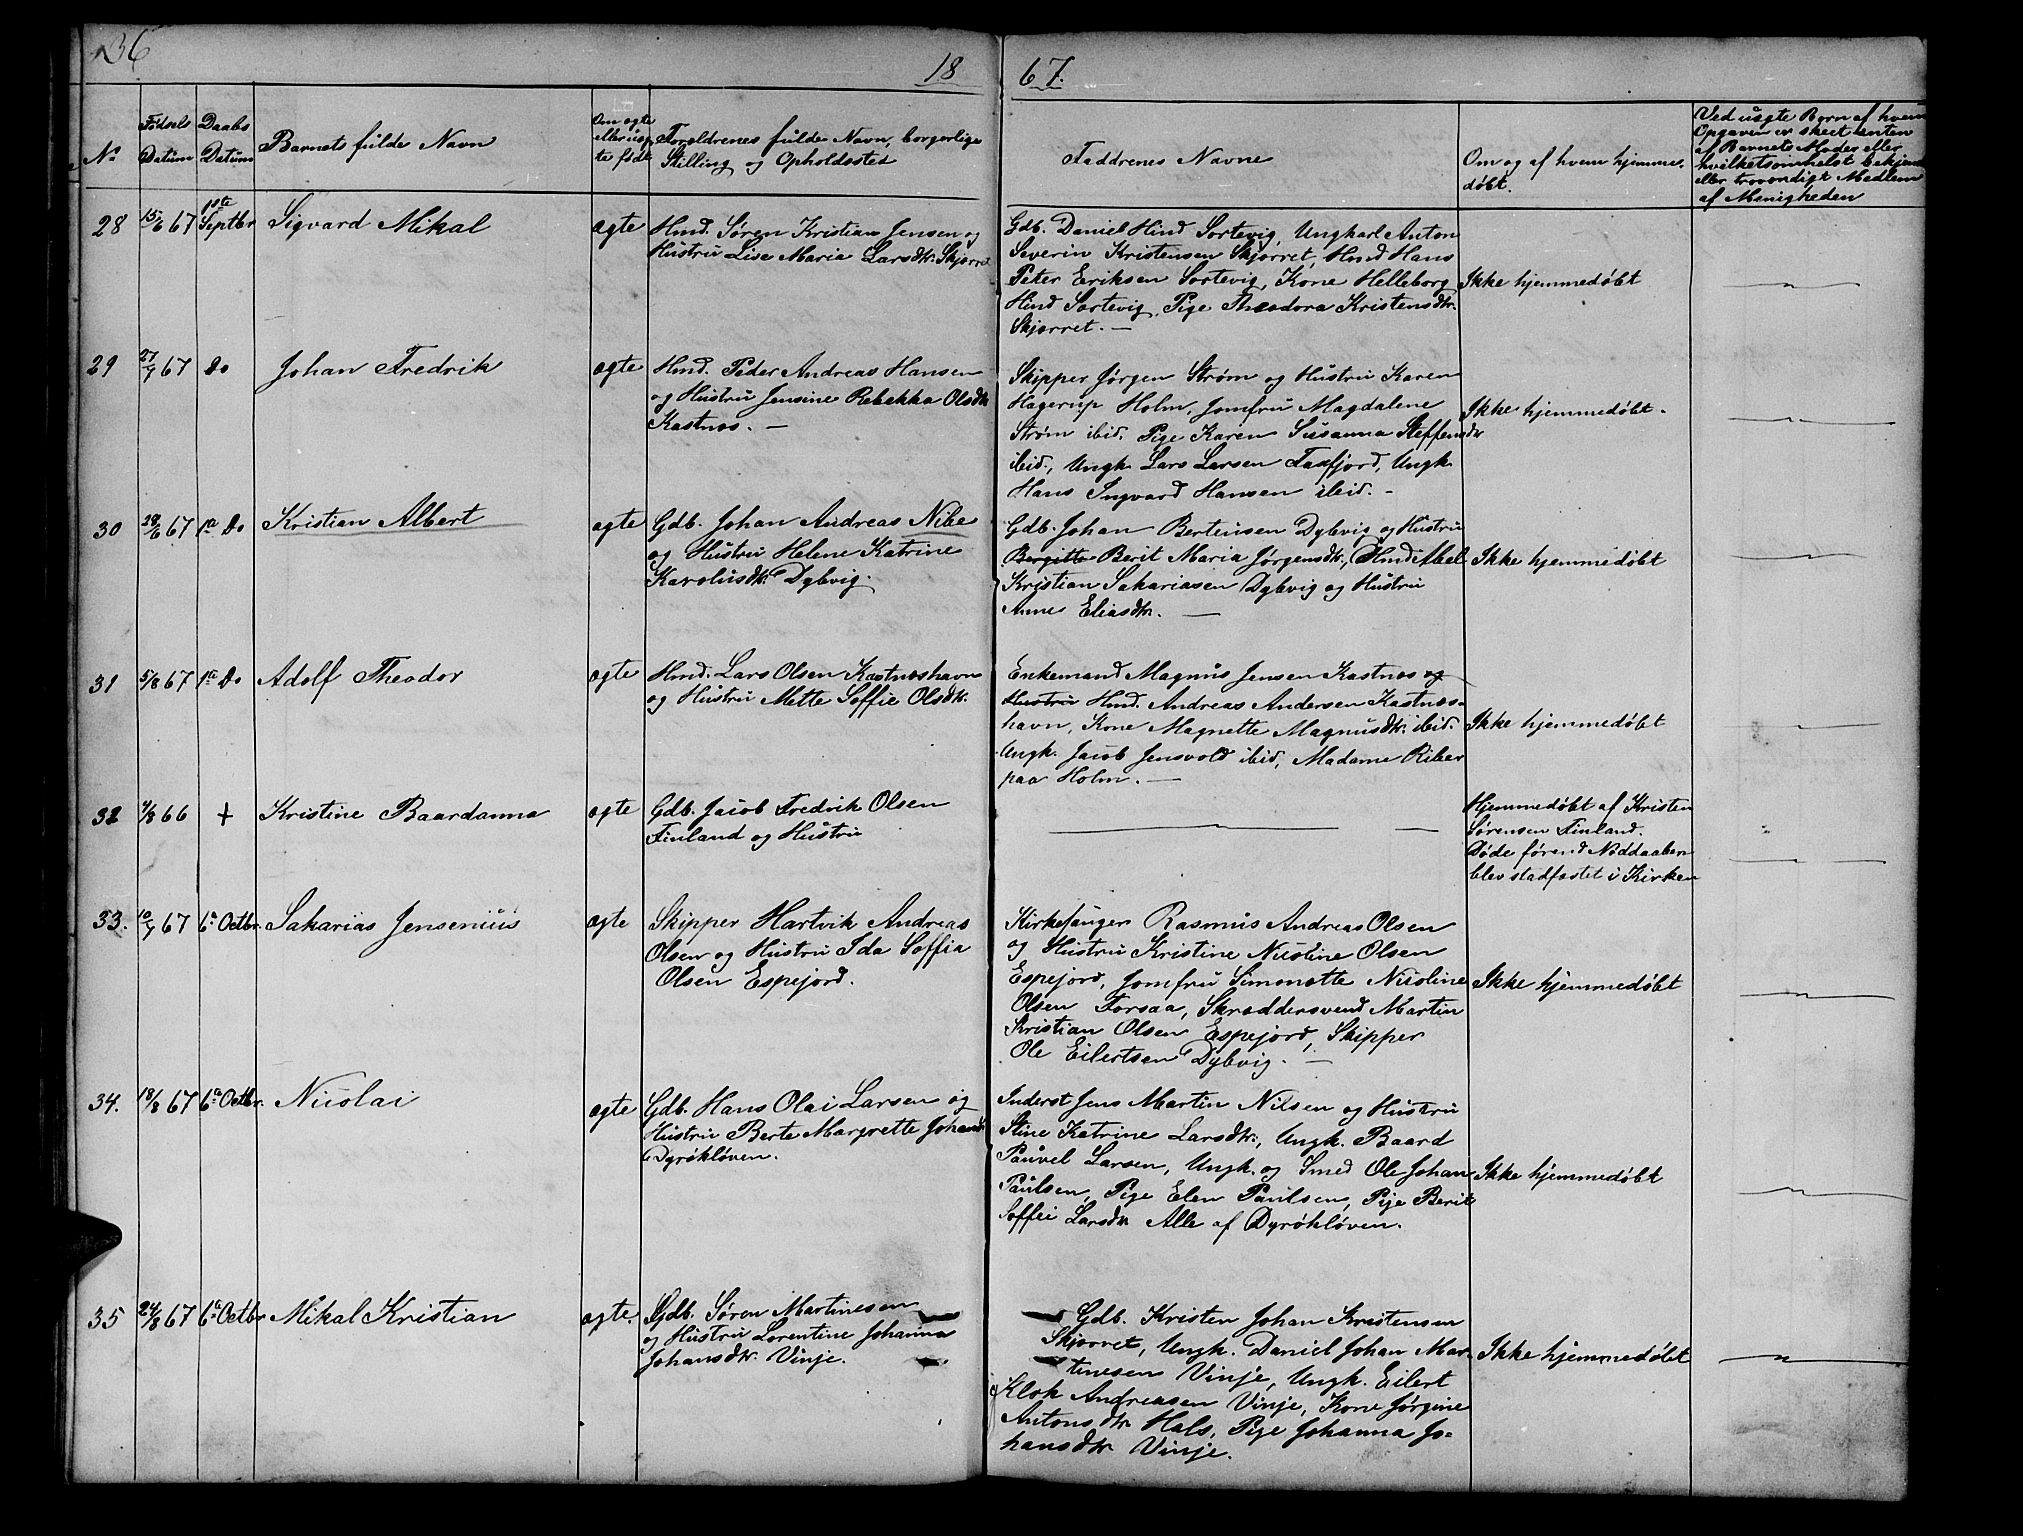 36
18 67.
No
Fødsels
Datum
Daabs
Datum
Barnets fulde Navn
Om ægte
eller uæg
te født
Forældrenes fulde Navn, borgerlige
Stilling og Opholdssted
Faddrenes Navne
Om og af hvem hjemme-
døbt.
Ved uægte Børn af hvem
Opgaven er skeet enten
af Barnets Moder eller
hvilketsomhelst bekjendt
eller troværdigt Medlem
af Menigheden
28 15/6 67 1ste Septbr Sigvard Mikal ægte
Hmd. Søren Kristian Jensen og
Hustru Lise Maria Larsdtr. Skjærret
Gdb. Daniel Hind Sortevig, Ungkarl Anton
Severin Kristensen Skjærret, Hmd Hans
Peter Eriksen Sortevig, Kone Helleborg
Hind Sortevig, Pige Theodora Kristensdtr.
Skjærret. —
Ikke hjemmedøbt
29 27/7 67 Do Johan Fredrik ægte
Hmd. Peder Andreas Hansen
og Hustru Jensine Rebekka Olsdtr
Kastnæs. —
Skipper Jørgen Strøm og Hustru Karen
Hagerup Holm, Jomfru Magdalene
Strøm ibid. Pige Karen Susanna Steffensdtr
ibid., Ungk. Lars Larsen Faxfjord, Ungk.
Hans Ingvard Hansen ibid. -
Ikke hjemmedøbt.
30 28/6 67 1a Do Kristian Albert ægte
Gdb. Johan Andreas Nibe
og Hustru Helene Katrine
Karolusdtr. Dybvig.
Gdb. Johan Berteusen Dybvig og Hustru
Bergitte Berit Maria Jørgensdtr., Hmd Abel
Kristian Sakariasen Dybvig og Hustru
Anne Eliasdtr. —
Ikke hjemmedøbt
31 5/8 67 1a Do Adolf Theodor ægte
Hmd. Lars Olsen Kastnæshavn
og Hustru Mette Soffie Olsdtr.
Enkemand Magnus Jensen Kastnæs og
Hustru Hmd. Andreas Andersen Kastnæs-
havn, Kone Magnette Magnusdtr. ibid.
Ungk. Jacob Jensvold ibid, Madame Riber
paa Holm. —
Ikke hjemmedøbt
32 4/8 66 + Kristine Baardanna ægte
Gdb. Jacob Fredrik Olsen
Finland og Hustru
Hjemmedøbt af Kristen
Sørensen Finland.
Døde førend Nøddaaben
blev stadfæstet i Kirken
33. 10/7 67 6a Octbr. Sakarias Jensenius ægte
Skipper Hartvik Andreas
Olsen og Hustru Ida Soffia
Olsen Espejord.
Kirkesanger Rasmus Andreas Olsen
og Hustru Kristine Nicoline Olsen
Espejord, Jomfru Simonette Nicoline
Olsen Forsaa, Skræddersvend Martin
Kristian Olsen Espejord, Skipper
Ole Eilertsen Dybvig. —
Ikke hjemmedøbt
34. 18/8 67 6a Octbr. Nicolai ægte
Gdb. Hans Olai Larsen og
Hustru Berte Margrette Johansdtr
Dyrøkløven.
Inderst Jens Martin Nilsen og Hustru
Stine Katrine Larsdtr., Ungk. Baard
Pauvel Larsen, Ungk. og Smed Ole Johan
Paulsen, Pige Elen Paulsen, Pige Berit
Soffie Larsdtr. Alle af Dyrøkløven.
Ikke hjemmedøbt
35 24/8 67 6a Octbr Mikal Kristian ægte.
Gdb. Søren Martinesen
og Hustru Lorentine Johanna
Johansdtr. Vinje.
Gdb. Kristen Johan Kristensen
Skjærret, Ungk. Daniel Johan Mar-
tinesen Vinje, Ungk. Eilert
Klok Andreasen Vinje, Kone Jørgine
Antonsdtr. Hals, Pige Johanna Jo-
hansdtr. Vinje.
Ikke hjemmedøbt